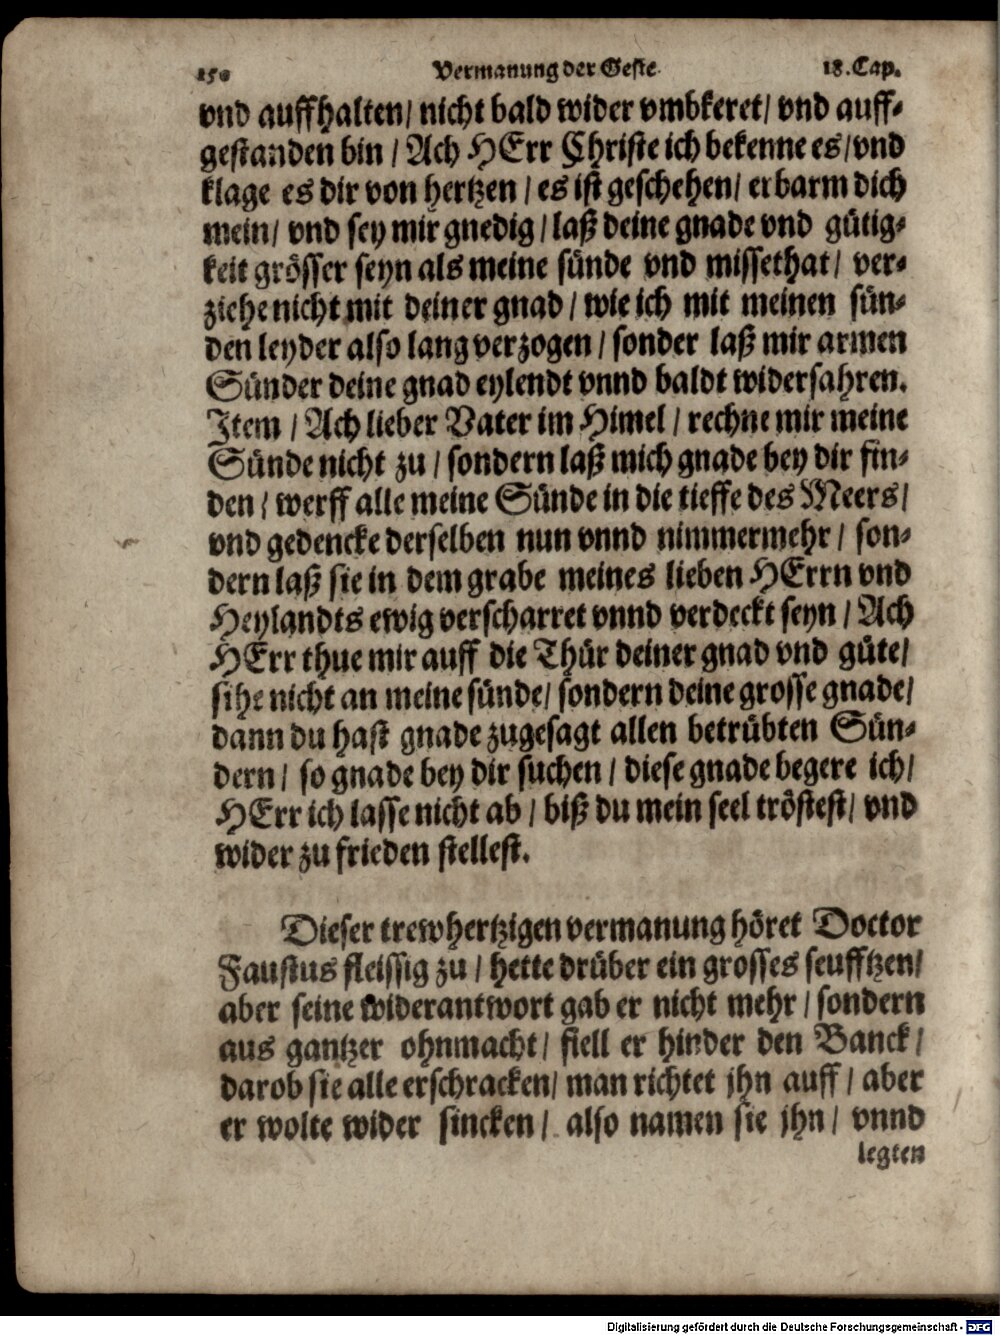 150 Vermanung der Geste. 18. Cap.
vnd auffhalten/ nicht bald wider vmbkeret/ vnd auff-
gestanden bin / Ach HErr Christe ich bekenne es/ vnd
klage es dir von hertzen / es ist geschehen/ erbarm dich
mein/ vnd sey mir gnedig / laß deine gnade vnd gütig-
keit grösser seyn als meine sünde vnd missethat/ ver-
ziehe nicht mit deiner gnad / wie ich mit meinen sün-
den leyder also lang verzogen / sonder laß mir armen
Sünder deine gnad eylendt vnnd baldt widerfahren.
Item / Ach lieber Vater im Himel / rechne mir meine
Sünde nicht zu / sondern laß mich gnade bey dir fin-
den / werff alle meine Sünde in die tieffe des Meers/
vnd gedencke derselben nun vnnd nimmermehr / son-
dern laß sie in dem grabe meines lieben HErrn vnd
Heylandts ewig verscharret vnnd verdeckt seyn / Ach
HErr thue mir auff die Thür deiner gnad vnd güte/
sihe nicht an meine sünde/ sondern deine grosse gnade/
dann du hast gnade zugesagt allen betrübten Sün-
dern / so gnade bey dir suchen / diese gnade begere ich/
HErr ich lasse nicht ab / biß du mein seel tröstest/ vnd
wider zu frieden stellest.
Dieser trewhertzigen vermanung höret Doctor
Faustus fleissig zu / hette drüber ein grosses seufftzen/
aber seine widerantwort gab er nicht mehr / sondern
aus gantzer ohnmacht/ fiell er hinder den Banck/
darob sie alle erschracken/ man richtet jhn auff / aber
er wolte wider sincken / also namen sie jhn / vnnd
legten
Digitalisierung gefördert durch die Deutsche Forschungsgemeinschaft - DFG